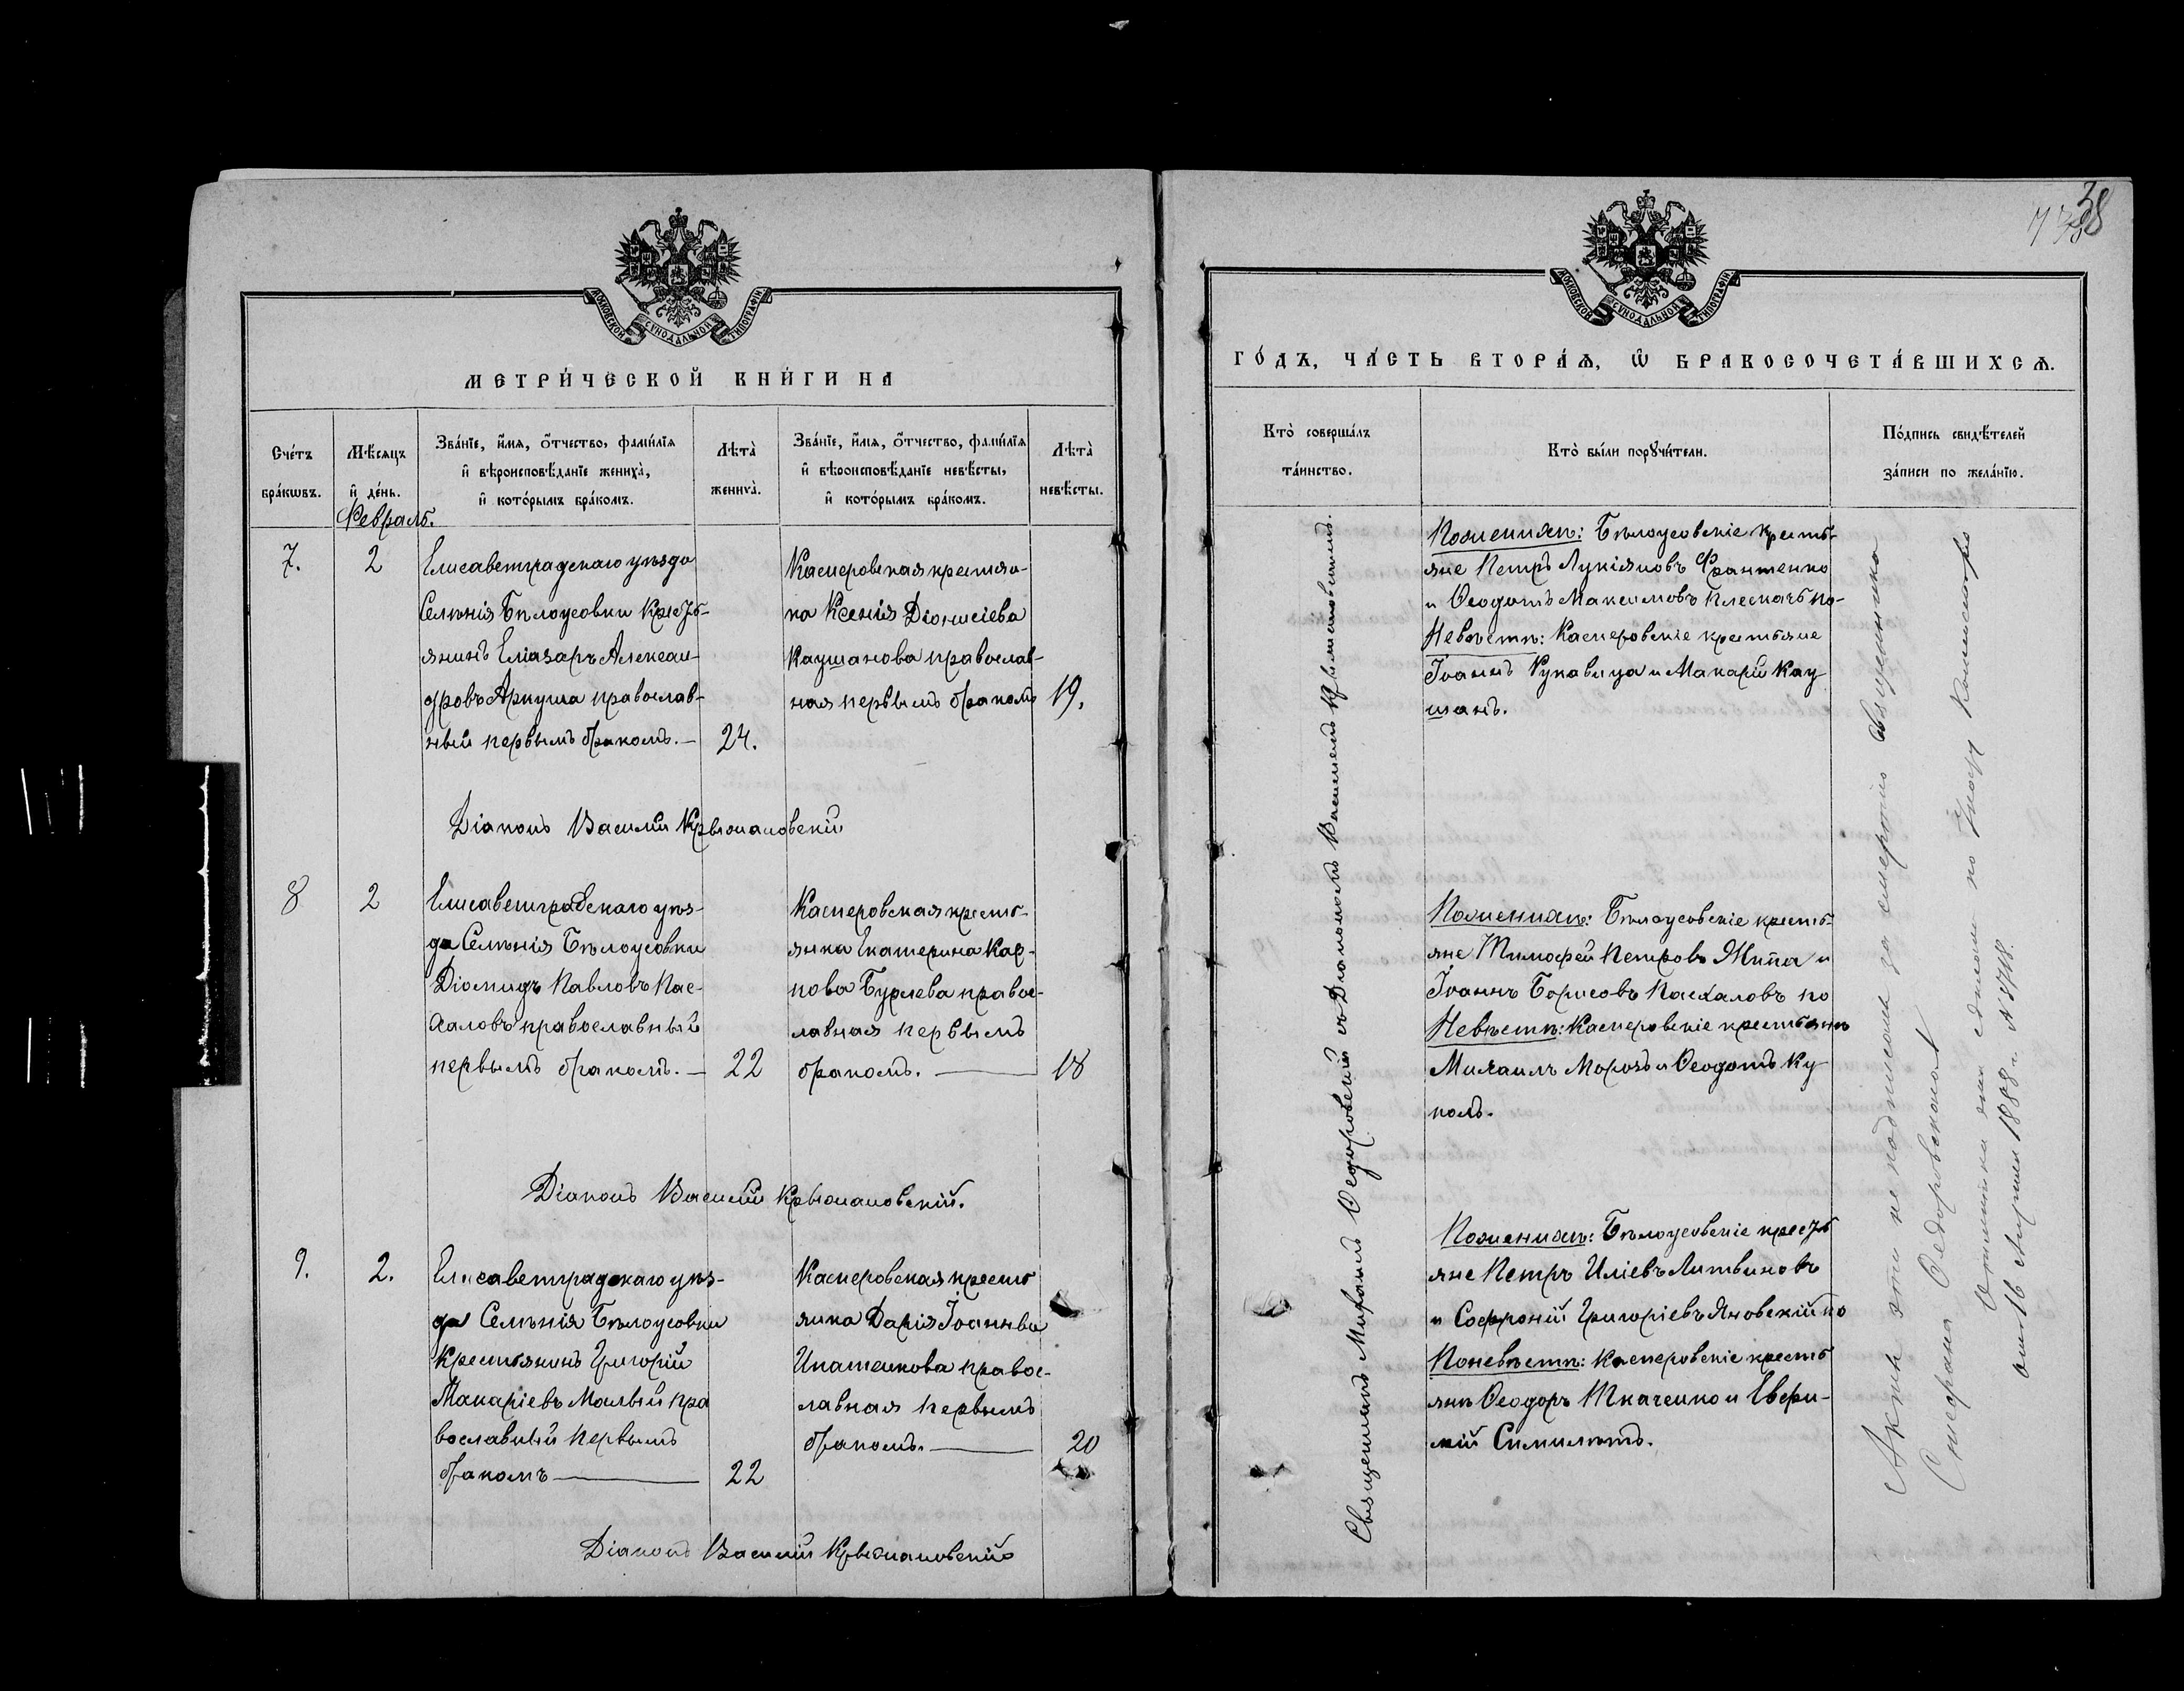 МОСКОВСКОЙ СУНОДАЛЬНОЙ ТИПОГРАФІИ
МЕТРИ́ЧЕСКОЙ КНИ́ГИ НА
Сче́тъ бра́кѡвъ.
Мѣ́сяцъ и҆ де́нь.
Зва́нїе, и҆́мя, ѻ҆́тчество, фами́лїя
и҆ вѣроисповѣ́данїе жениха̀,
и҆ кото́рымъ бра́комъ.
Лѣта̀ жениха̀.
Зва́нїе, и҆́мя, ѻ҆́тчество, фами́лїя
и҆ вѣроисповѣ́данїе невѣ́сты,
и҆ кото́рымъ бра́комъ.
Лѣта̀ невѣ́сты.
Февраль.
7.
2
Елисаветградскаго уѣзда
Селенія Бѣлоусовки Кресть-
янинъ Еліазаръ Алексан-
дровъ Аркуша православ-
ный первымъ бракомъ.—
24.
Касперовская крестян-
ка Ксенія Діонисіева
Каушанова православ-
ная первымъ бракомъ
19.
Діаконъ Василій Крыжановскій
8
2
Елисаветградскаго уѣз-
да Селенія Бѣлоусовки
Діомидъ Павловъ Пас-
халовъ православный
первымъ бракомъ.—
22
Касперовская кресть-
янка Екатерина Кар-
пова Бурлева правос-
лавная первымъ
бракомъ.—
18
Діаконъ Василій Крыжановскій.
9.
2.
Елисаветградскаго уѣз-
да Селенія Бѣлоусовки
Крестьянинъ Григорій
Макаріевъ Малый пра
вославный первымъ
бракомъ—
22
Касперовская кресть
янка Дарія Іоаннва
Игнатенкова правос-
лавная первымъ
бракомъ.—
20
Діаконъ Василій Крыжановскій
38
МОСКОВСКОЙ СУНОДАЛЬНОЙ ТИПОГРАФІИ
ГО́ДЪ, ЧА́СТЬ ВТОРА́Я, Ѡ҆ БРАКОСОЧЕТА́ВШИХСЯ.
Кто̀ соверша́лъ
та́инство.
Кто̀ бы́ли порꙋчи́тели.
По́дпись свидѣ́телей
за́писи по жела́нїю.
Священникъ Мифодій Ѳедоровскій съ Діакономъ Василіемъ Крыжановскимъ.
Поженихѣ: Бѣлоусовскіе кресть-
яне Петръ Лукіяновъ Франтенко
и Ѳеодотъ Максимовъ Плескачъ по-
Невѣстѣ: Касперовскіе крестьяне
Іоаннъ Рукавица и Макарій Кау
шанъ.
Поженихѣ: Бѣлоусовскіе кресть-
яне Тимофей Петровъ Жипа и
Іоаннъ Борисовъ Пасхаловъ по
Невѣстѣ: Касперовскіе крестьяне
Михаилъ Морозъ и Ѳеодотъ Ку
колъ.
Поженихѣ: Бѣлоусовскіе кресть
яне Петръ Иліевъ Литвиновъ
и Софроній Григоріевъ Яновскій по
Поневѣстѣ: Касперовскіе кресть
яне Ѳеодоръ Ткаченко и Евфи-
мій Симилѣтъ.
Акты эти не подписаны за смертію священника
Стефана Ѳедоровскаго
Отмѣтка эта сдѣлана по Указу Консисторіи
отъ 16 Апрѣля 1888 г. №